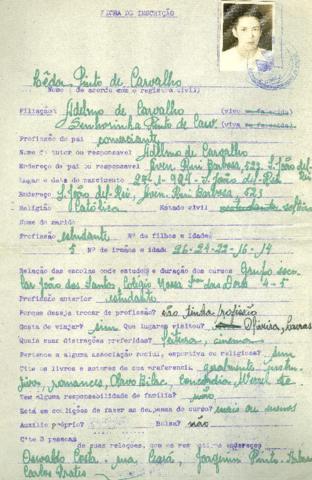 FICHA DE INSCRIÇÃO
Lêda Pinto de Carvalho
Nome (de acordo com o registro civil)
Filiação: Adelmo de Carvalho (vivo
Senhorinha Pinto de Carv. (viva
Profissão do pai comerciante
Nome do tutor ou responsavel Adelmo de Carvalho
Endereço do pai ou responsavel Aven. Rui Barbosa, 523. S. João del-Rei
Lugar e data do nascimento S. João del-Rei
Endereço S. João del-Rei, Aven. Rui Barbosa, 523
Religião Católica Estado civil solteira
Nome do marido
Profissão estudante Nº de filhos e idade
5 Nº de irmãos e idade 26-24-22-16-14
Relação das escolas onde estudou e duração dos cursos Grupo esco-
lar João dos Santos, Colégio Nossa Sra das Dores 4-5
Profissão anterior estudante
Porque deseja trocar de profissão? não tinha profissão
Gosta de viajar? sim Que lugares visitou? Lavras
Quais suas distrações preferidas? leitura, cinema
Pertence a alguma associação social, esportiva ou religiosa? sim
Cite os livros e autores de sua preferencia.
romances, Olavo Bilac,
Tem alguma responsabilidade de familia? não
Está em condições de fazer as despesas do curso? mais ou menos
Auxílio próprio? Bolsa? não
Cite 3 pessoas
de suas relações, com os respectivos endereços
Oswaldo Costa - rua Ceará, Joaquim Pinto -
Carlos Prates